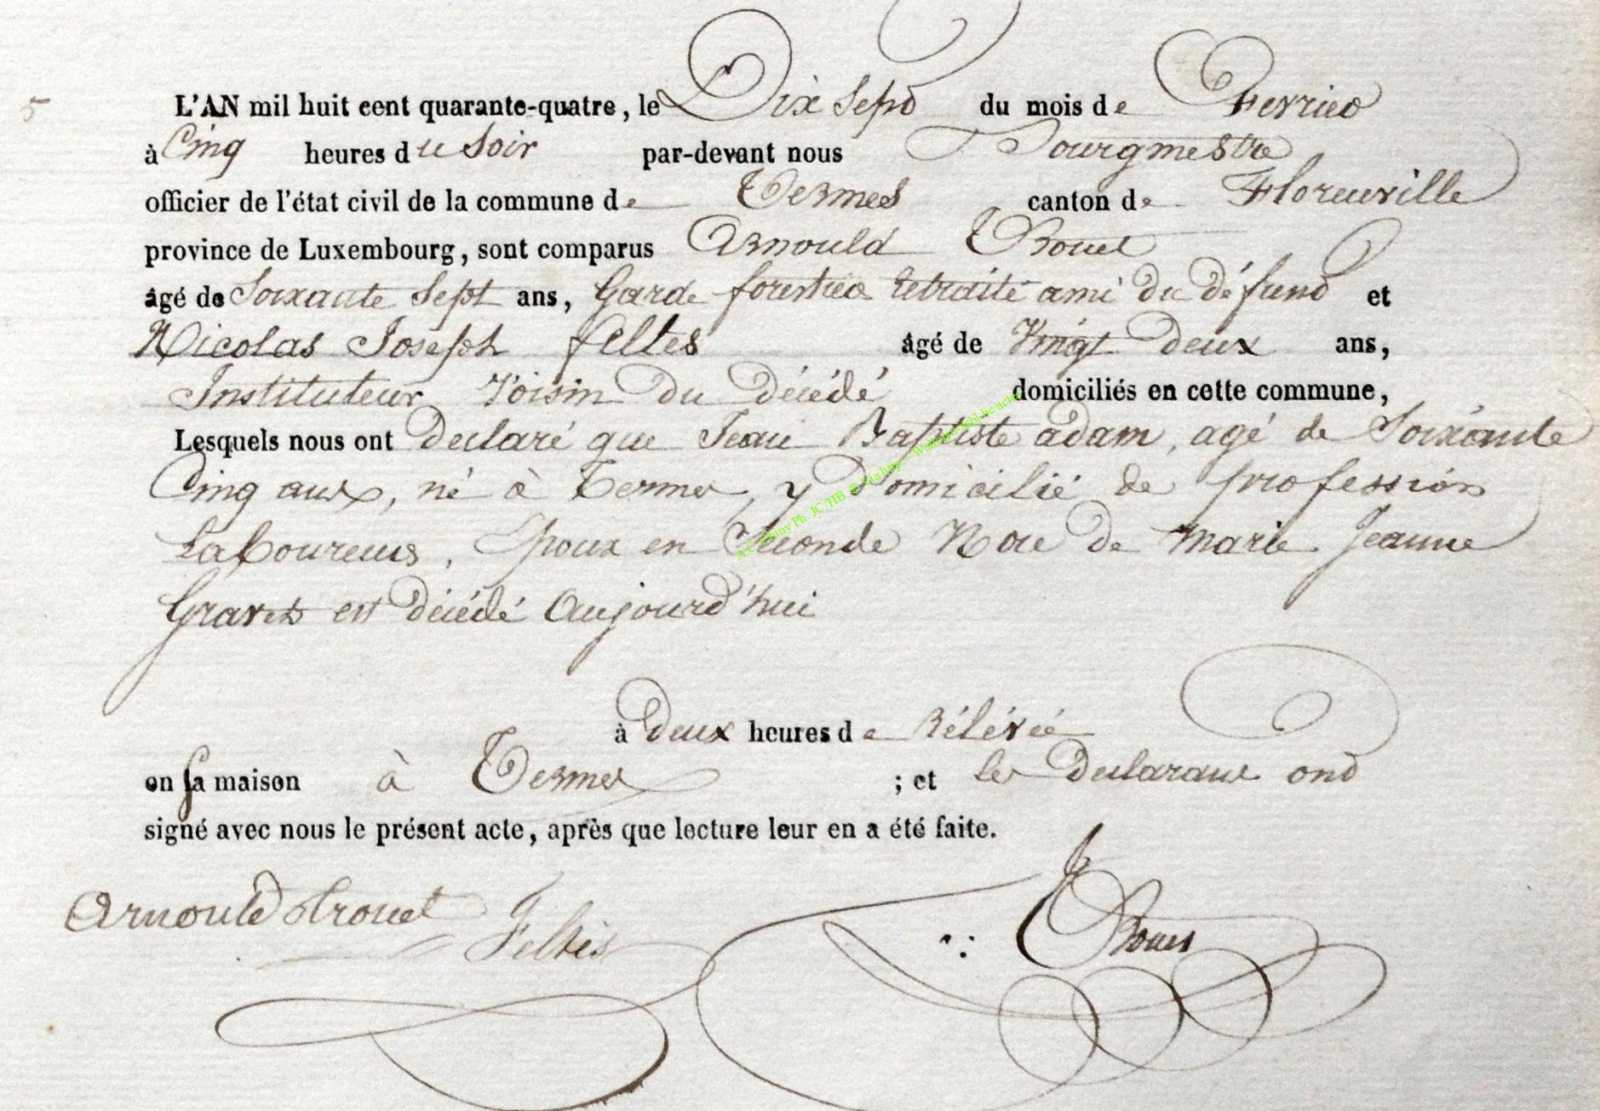 5
L'AN mil huit cent quarante-quatre, le Dix Sept du mois de Fevrier
à Cinq heures du Soir par-devant nous Bourgmestre
officier de l'état civil de la commune de Termes canton de Florenville
province de Luxembourg, sont comparus Arnould Trouet
âgé de Soixante Sept ans, Garde forestier retraité ami du défunt et
Nicolas Joseph feltes âgé de Vingt deux ans,
Instituteur Voisin du décédé domiciliés en cette commune,
Lesquels nous ont Declaré que Jean Baptiste adam, agé de Soixante
Cinq ans, né à Termes, y domicilié de profession
Laboureurs, Epoux en Seconde Noce de Marie Jeanne
est décédé Aujourd'hui
à Deux heures de Rélévée
en sa maison à Termes ; et les Declarans ont
signé avec nous le présent acte, après que lecture leur en a été faite.
Arnould trouet Feltes